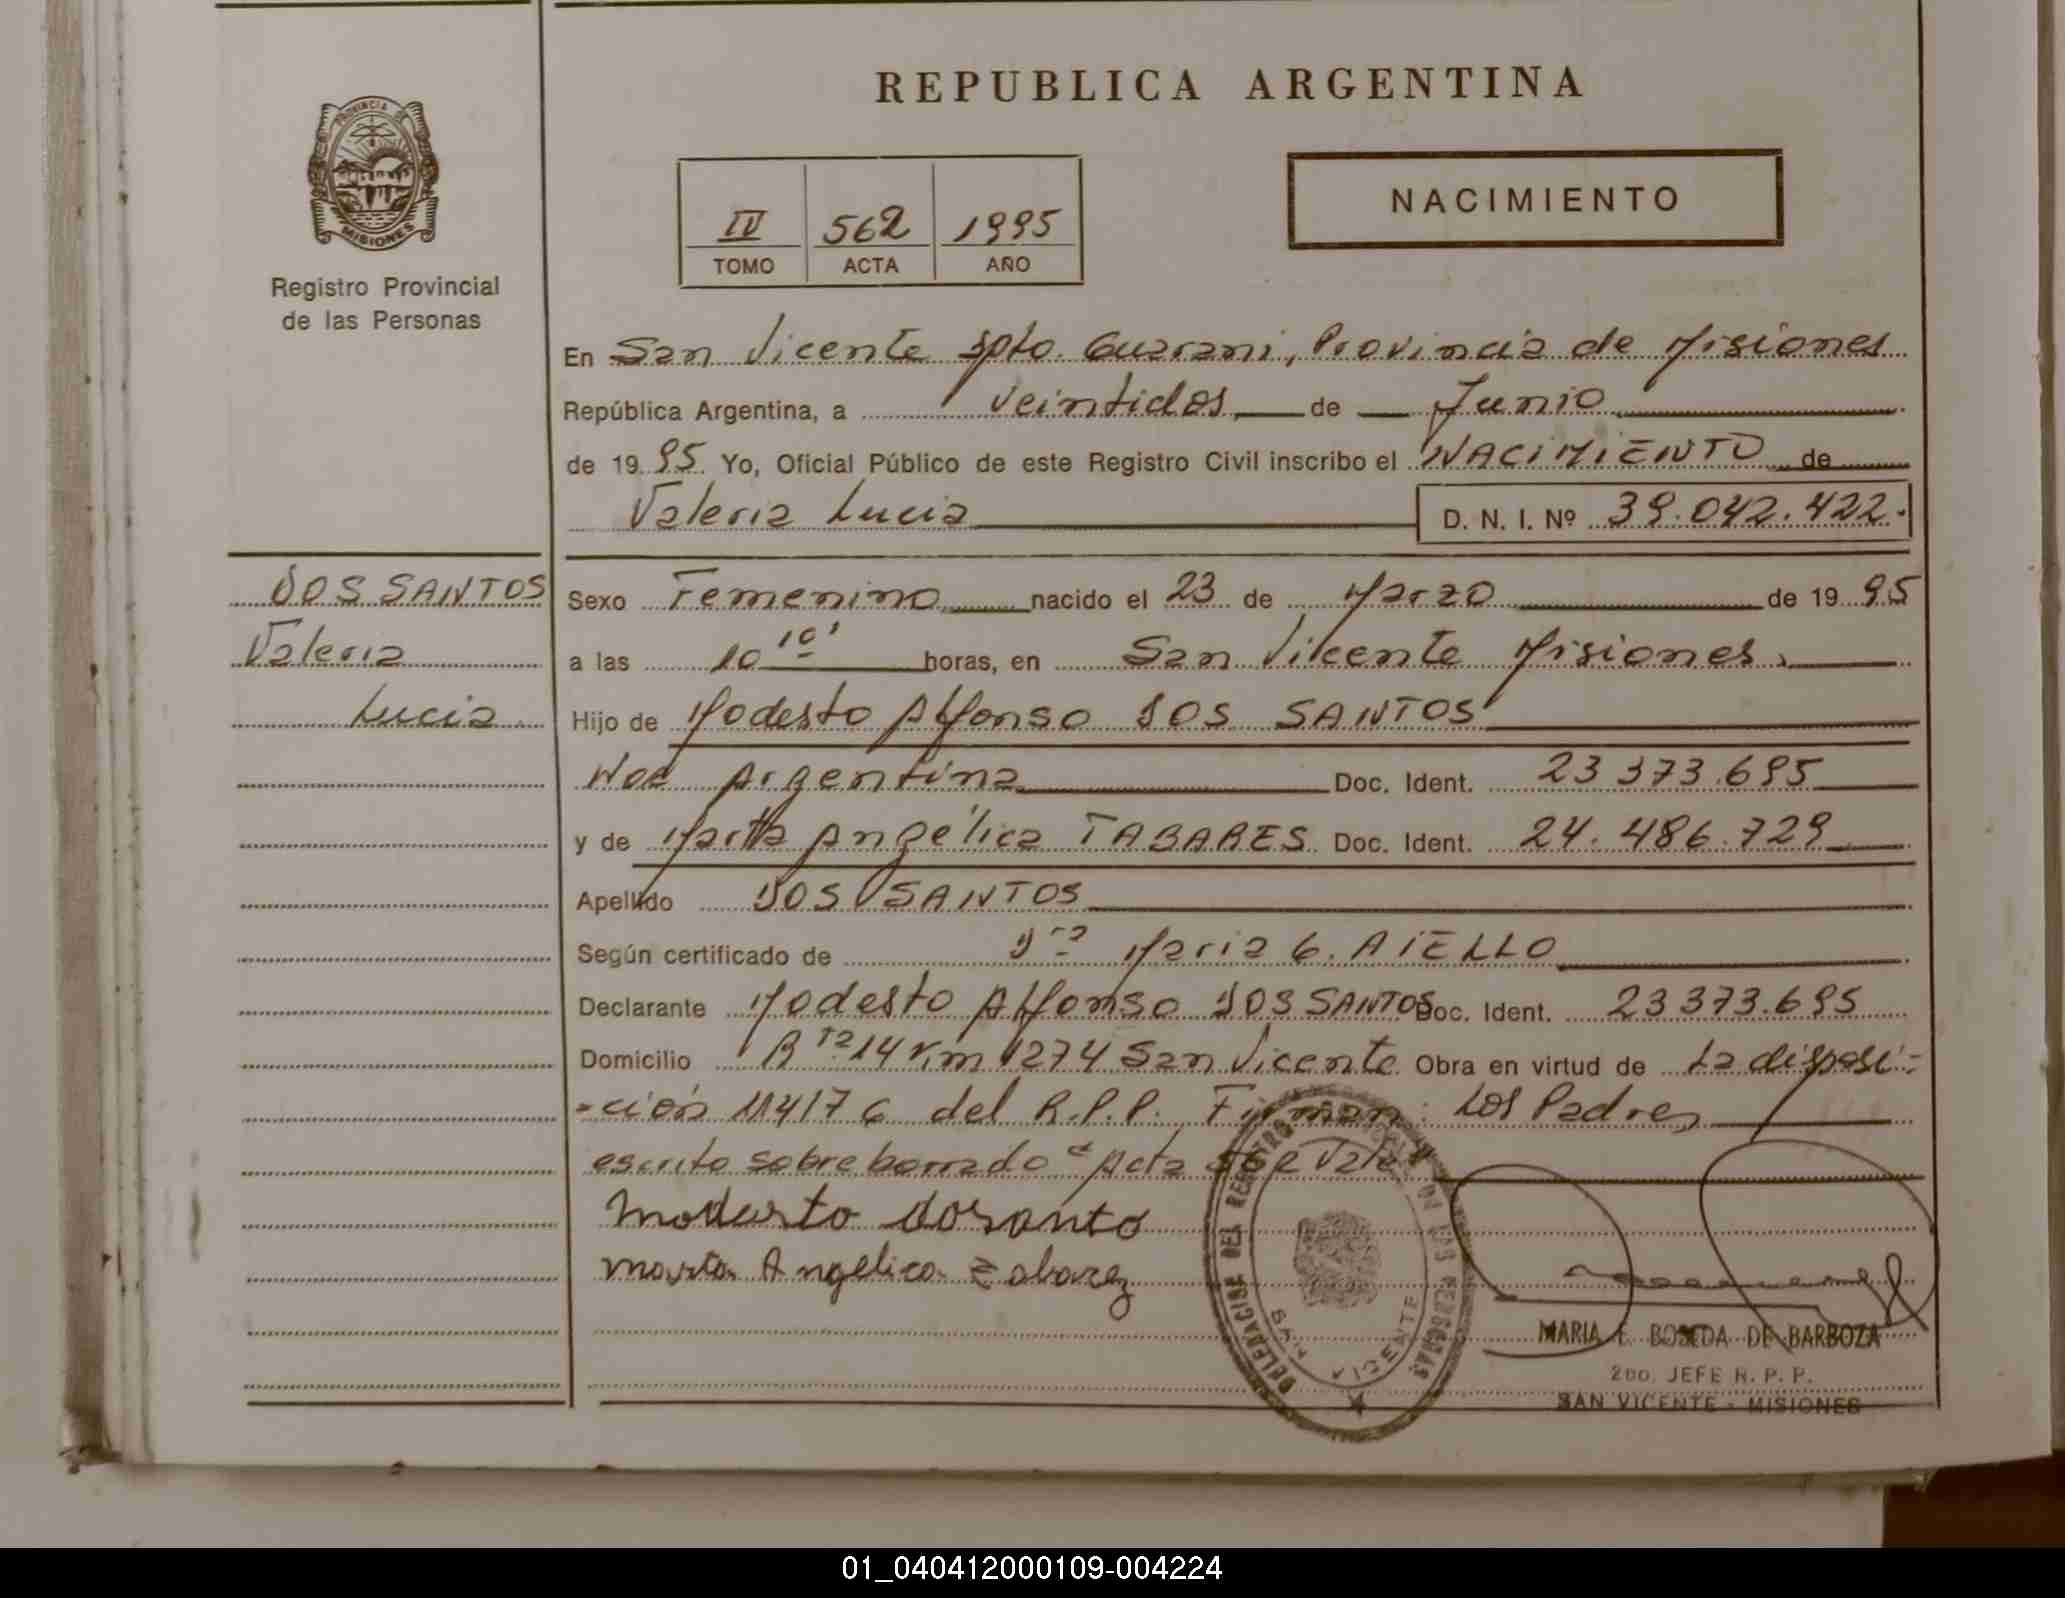 REPUBLICA ARGENTINA
PROVINCIA DE MISIONES
Registro Provincial
de las Personas
IV 562 1995
TOMO ACTA AÑO
NACIMIENTO
En San Vicente Dpto. Guarani, Provincia de Misiones
República Argentina, a veintidos de Junio
de 1995 Yo, Oficial Público de este Registro Civil inscribo el NACIMIENTO de
Valeria Lucia D. N. I. Nº 39.042.422.
DOS SANTOS
Valeria
Lucia
Sexo Femenino nacido el 23 de Marzo de 1995
a las 10 10' horas, en San Vicente Misiones.
Hijo de Modesto Alfonso DOS SANTOS
Nac Argentina Doc. Ident. 23 373.695
y de Marta Angélica TABARES Doc. Ident. 24.486.729
Apellido DOS SANTOS
Según certificado de Dra Maria G. AIELLO
Declarante Modesto Alfonso DOS SANTOS Doc. Ident. 23 373.695
Domicilio Rta 14 Km 1274 San Vicente Obra en virtud de La disposi-
-ción 114/76 del R.P.P. Firman: Los Padres
escrito sobre borrado Acta Vale
Modesto dosanto
Marta Angelica Tabarez
DELEGACION DEL REGISTRO DE LAS PERSONAS
SAN VICENTE
MARIA E. DE BARBOZA
2DO. JEFE R. P. P.
SAN VICENTE - MISIONES
01_040412000109-004224